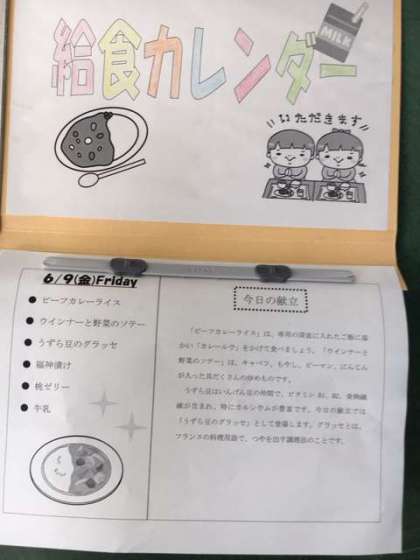 給食カレンダー
MILK
いただきます
6/9(金)Friday
● ビーフカレーライス
● ウインナーと野菜のソテー
● うずら豆のグラッセ
● 福神漬け
● 桃ゼリー
● 牛乳
今日の献立
「ビーフカレーライス」は、専用の深皿に入れたご飯に温
かい「カレールウ」をかけて食べましょう。「ウインナーと
野菜のソテー」は、キャベツ、もやし、ピーマン、にんじん
が入った具だくさんの炒めものです。
うずら豆はいんげん豆の仲間で、ビタミン B1、B2、食物繊
維が含まれ、特にカルシウムが豊富です。今日の献立では
「うずら豆のグラッセ」として登場します。グラッセとは、
フランスの料理用語で、つやを出す調理法のことです。